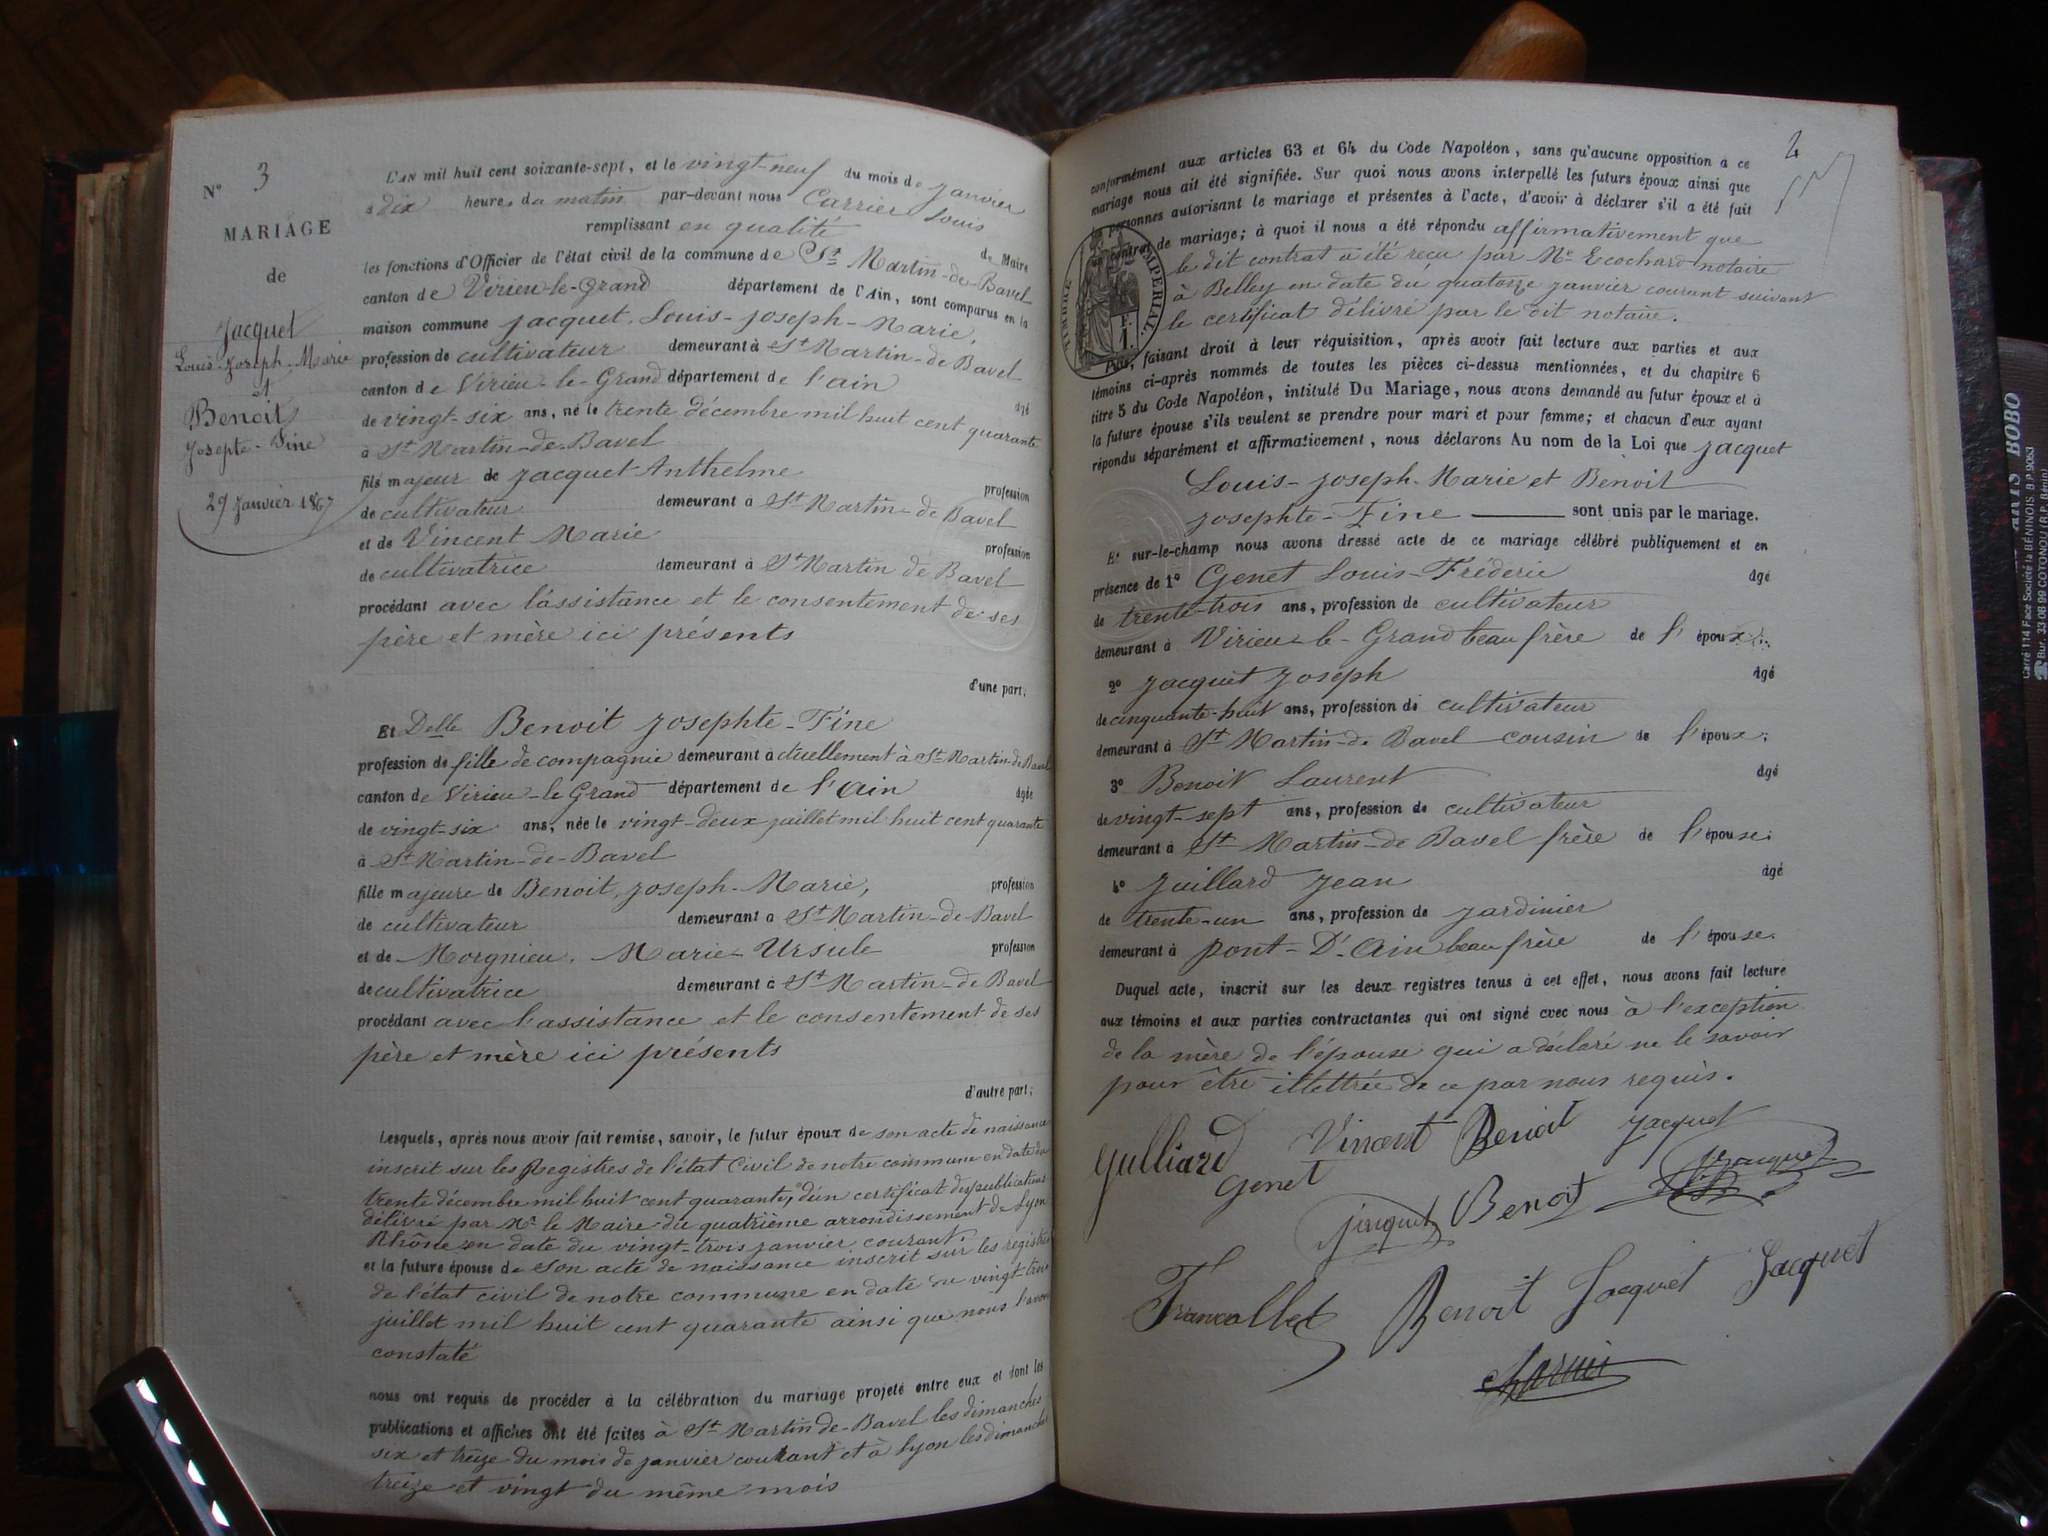 N° 3
MARIAGE
de
Jacquet
Louis-Joseph-Marie
et
Benoit
Josephte-Fine
29 Janvier 1867
L'AN mil huit cent soixante-sept, et le vingt-neuf du mois de janvier
à dix heures du matin par-devant nous Carrier Louis
remplissant en qualité de Maire
les fonctions d'Officier de l'état civil de la commune de St Martin-de-Bavel
canton de Virieu-le-Grand département de l'Ain, sont comparus en la
maison commune Jacquet, Louis-Joseph-Marie,
profession de cultivateur demeurant à St Martin-de Bavel
canton de Virieu-le-Grand département de l'ain âgé
de vingt-six ans, né le trente décembre mil huit cent quarante
à St Martin-de-Bavel
fils majeur de Jacquet Anthelme profession
de cultivateur demeurant à St Martin-de Bavel
et de Vincent Marie profession
de cultivatrice demeurant à St Martin de Bavel
procédant avec l'assistance et le consentement de ses
père et mère ici présents
d'une part;
Et Delle Benoit Josephte-Fine
profession de fille de compagnie demeurant actuellement à St Martin-de Bavel
canton de Virieu-le Grand département de l'Ain âgée
de vingt-six ans, née le vingt-deux juillet mil huit cent quarante
à St Martin-de-Bavel
fille majeure de Benoit, Joseph-Marie, profession
de cultivateur demeurant à St Martin-de-Bavel
et de Morgnieu, Marie-Ursule profession
de cultivatrice demeurant à St Martin-de Bavel
procédant avec l'assistance et le consentement de ses
père et mère ici présents
d'autre part;
Lesquels, après nous avoir fait remise, savoir, le futur époux de son acte de naissance
inscrit sur les Registres de l'état Civil de notre commune en date du
trente décembre mil huit cent quarante, d'un certificat de publications
délivré par Mr le Maire du quatrième arrondissement de Lyon
Rhône en date du vingt-trois janvier courant.
et la future épouse de son acte de naissance inscrit sur les registres
de l'état civil de notre commune en date du vingt-trois
juillet mil huit cent quarante ainsi que nous l'avons
constaté
nous ont requis de procéder à la célébration du mariage projeté entre eux et dont les
publications et affiches ont été faites à St Martin de-Bavel les dimanches
six et treize du mois de janvier courant et à Lyon les dimanches
treize et vingt du même mois
2
conformément aux articles 63 et 64 du Code Napoléon, sans qu'aucune opposition à ce
mariage nous ait été signifiée. Sur quoi nous avons interpellé les futurs époux ainsi que
personnes autorisant le mariage et présentes à l'acte, d'avoir à déclarer s'il a été fait
un contrat de mariage; à quoi il nous a été répondu affirmativement que
le dit contrat a été reçu par Me Ecochard notaire
à Belley en date du quatorze janvier courant suivant
le certificat délivré par le dit notaire.
TIMBRE IMPERIAL
F.
1.
faisant droit à leur réquisition, après avoir fait lecture aux parties et aux
témoins ci-après nommés de toutes les pièces ci-dessus mentionnées, et du chapitre 6
titre 5 du Code Napoléon, intitulé Du Mariage, nous avons demandé au futur époux et à
la future épouse s'ils veulent se prendre pour mari et pour femme; et chacun d'eux ayant
répondu séparément et affirmativement, nous déclarons Au nom de la Loi que Jacquet
Louis-Joseph-Marie et Benoit
Josephte-Fine sont unis par le mariage.
Et sur-le-champ nous avons dressé acte de ce mariage célébré publiquement et en
présence de 1° Genet Louis-Fréderic âgé
de trente-trois ans, profession de cultivateur
demeurant à Virieu-le-Grand beau frère de l'époux;
2° Jacquet Joseph âgé
de cinquante-huit ans, profession de cultivateur
demeurant à St Martin-de Bavel cousin de l'époux;
3° Benoit Laurent âgé
de vingt-sept ans, profession de cultivateur
demeurant à St Martin-de Bavel frère de l'épouse;
4° Juillard Jean âgé
de trente-un ans, profession de jardinier
demeurant à Pont-D'Ain beau frère de l'épouse.
Duquel acte, inscrit sur les deux registres tenus à cet effet, nous avons fait lecture
aux témoins et aux parties contractantes qui ont signé avec nous à l'exception
de la mère de l'épouse qui a déclaré ne le savoir
pour être illettrée de ce par nous requis.
Gulliard Vincent Benoit Jacquet
Genet
Jacquet Benoit Jacquet
Francallet Benoit Jacquet Jacquet
Carrier
BOBO
Carré 114 Face Société la BÉNINOIS. B.P. 9063
Bur. 33 08 99 COTONOU (R.P. Bénin)